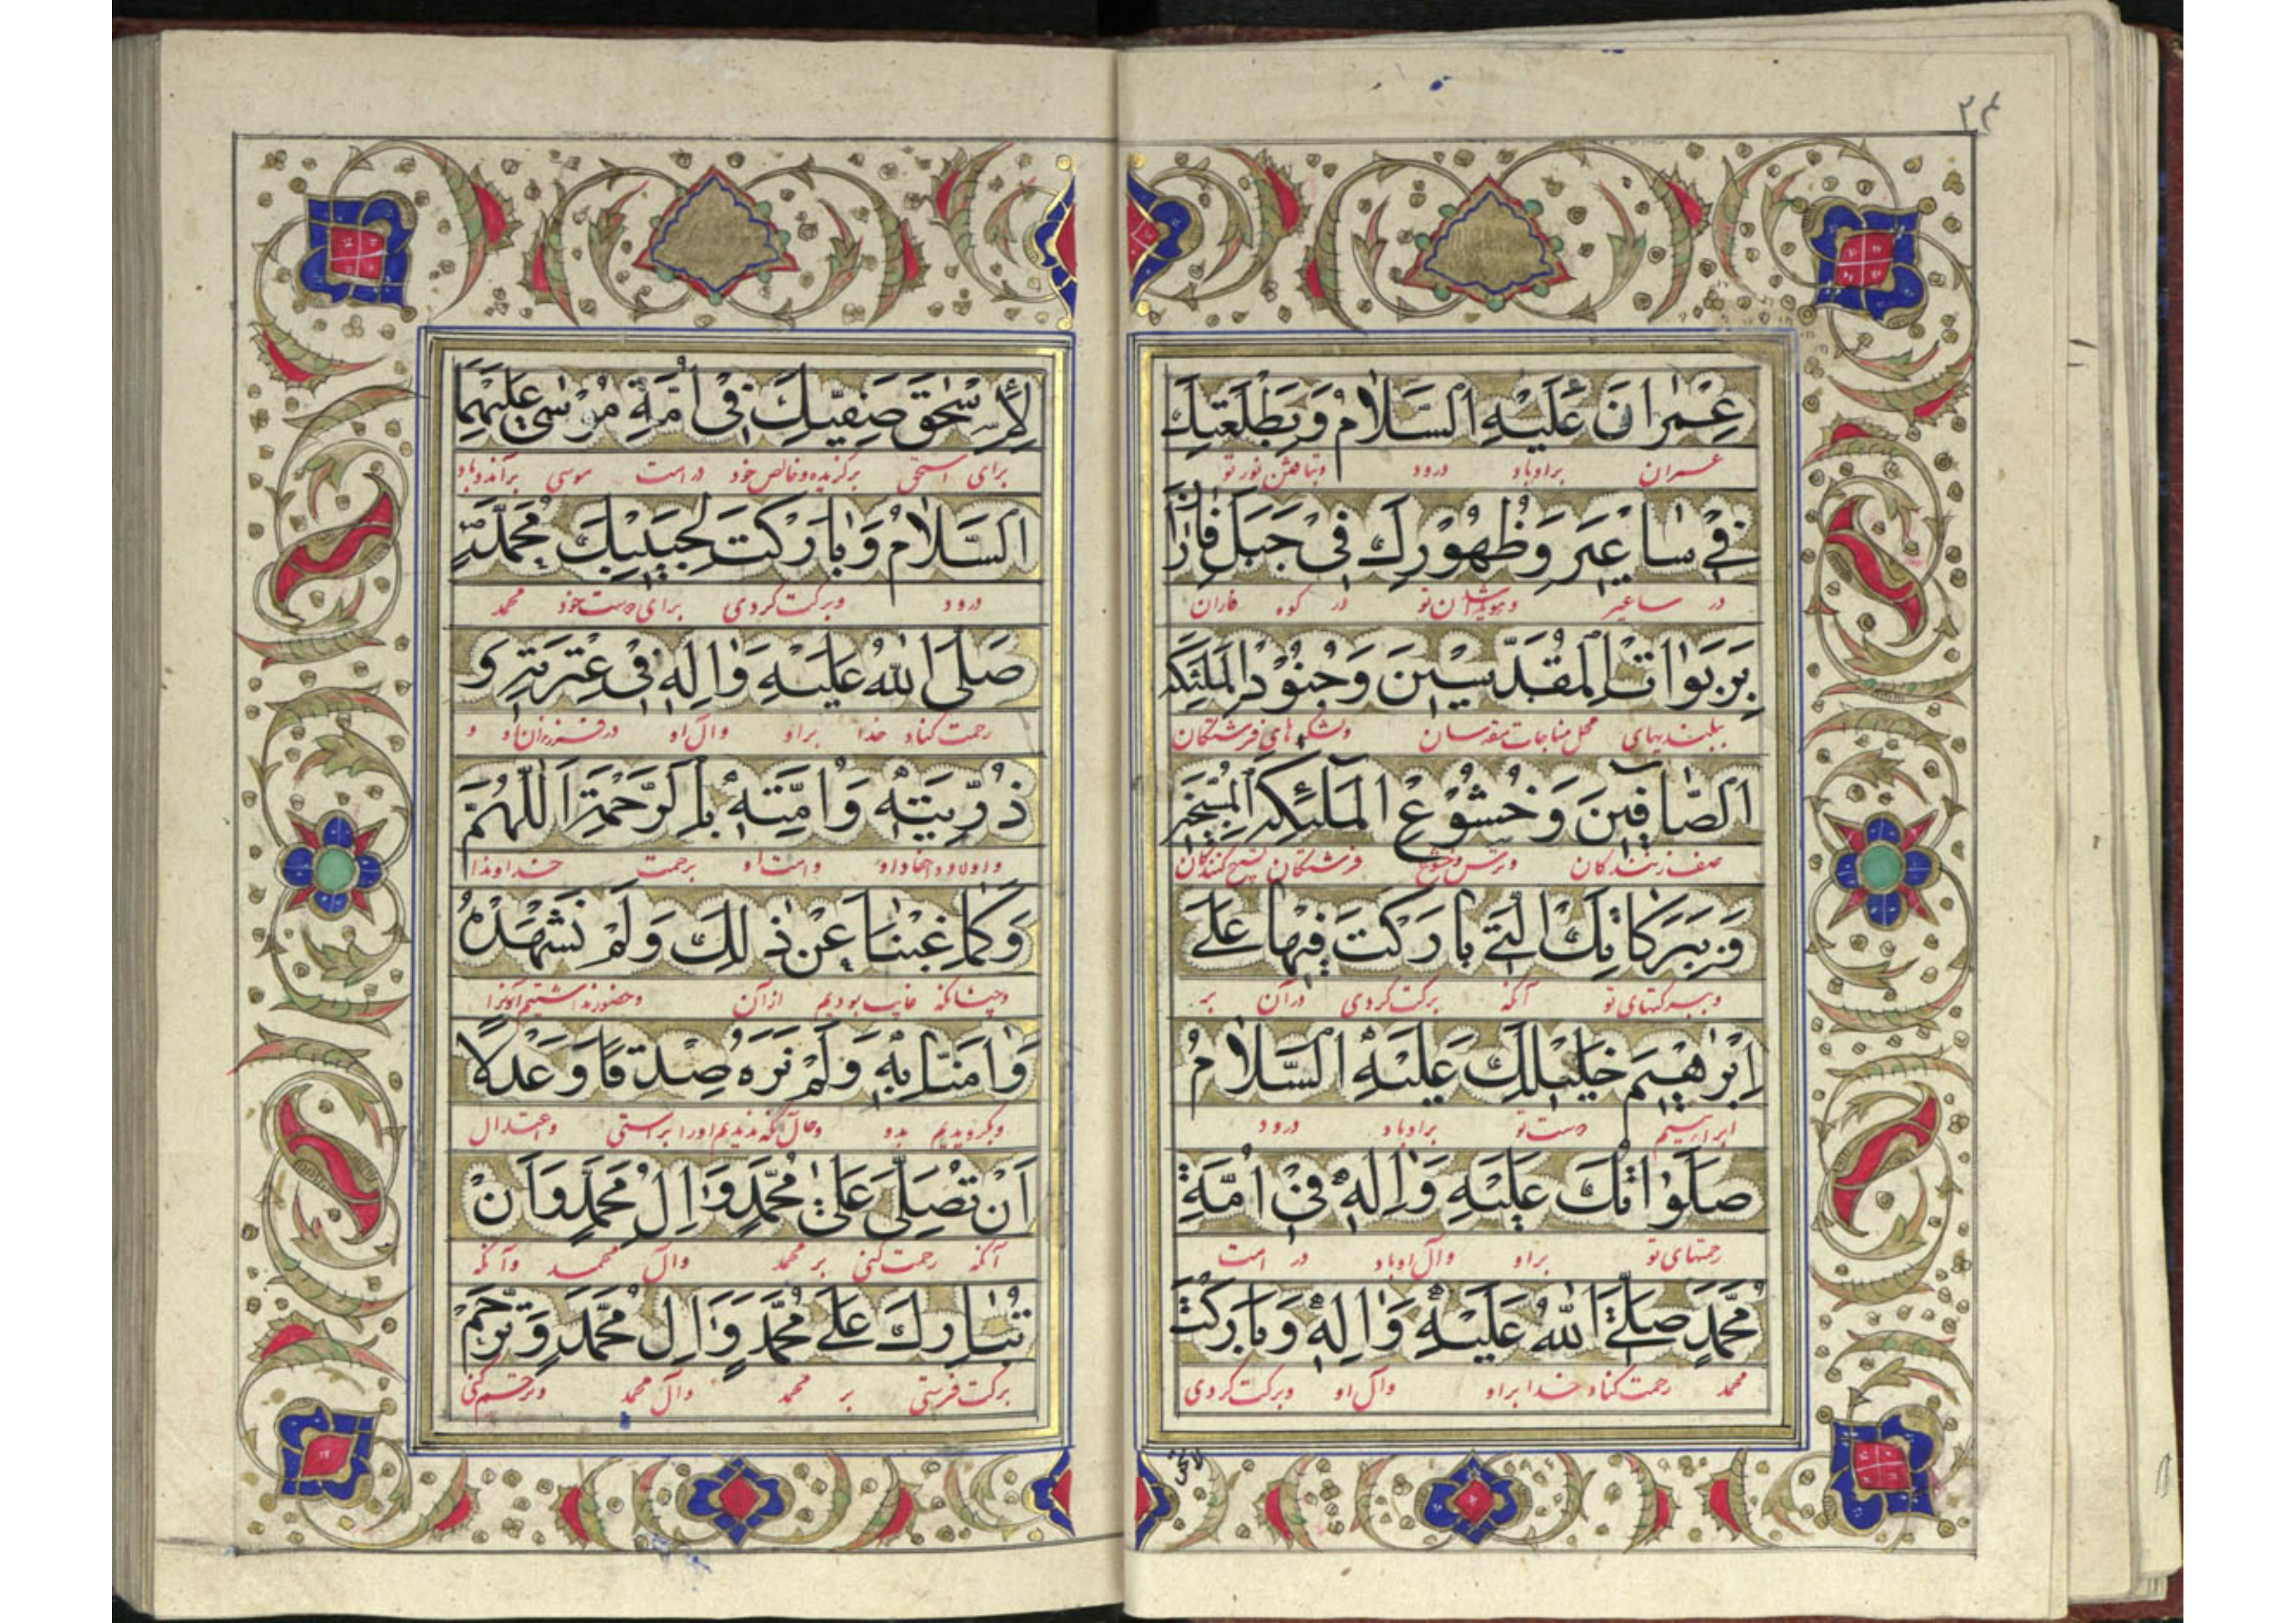 ۲۴
عِمْرانَ عَلَیْهِ السَّلامُ وَبِطَلْعَتِكَ
عمران براو باد درود وبتافتن نور تو
فی ساعیرَ وَظُهُورِكَ فی جَبَلِ فارانَ
در ساعیر وهویدا شدن تو در کوه فاران
بِرَبَواتِ الْمُقَدَّسینَ وَجُنُودِ الْمَلٰئِکَةِ
ببلندیهای محل مناجات مقدسان ولشکرهای فرشتگان
الصّافّینَ وَخُشُوعِ الْمَلائِکَةِ الْمُسَبِّحینَ
صف زنندگان وترس وخشوع فرشتگان تسبیح کنندگان
وَبِبَرَکاتِكَ الَّتی بارَکْتَ فیها عَلی
وببرکتهای تو آنکه برکت کردی در آن بر
اِبْرٰهیمَ خَلیلِكَ عَلَیْهِ السَّلامُ
ابراهیم دوست تو براو باد درود
صَلَواتُكَ عَلَیْهِ وَاٰلِهِ فی اُمَّةِ
رحمتهای تو براو وآل او باد در امت
مُحَمَّدٍ صَلَّی اللهُ عَلَیْهِ وَاٰلِهِ وَبارَکْتَ
محمد رحمت کناد خدا براو وآل او وبرکت کردی
لِاِسْحٰقَ صَفِیِّكَ فی اُمَّةِ مُوسٰی عَلَیْهِمَا
برای اسحق برگزیده وخالص خود در امت موسی برآندو باد
السَّلامُ وَبارَکْتَ لِحَبیبِكَ مُحَمَّدٍ
درود وبرکت کردی برای دوست خود محمد
صَلَّی اللهُ عَلَیْهِ وَاٰلِهِ فی عِتْرَتِهِ وَ
رحمت کناد خدا براو وآل او در فرزندان او و
ذُرِّیَّتِهِ وَاُمَّتِهِ بِالرَّحْمَةِ اَللّٰهُمَّ
واولاد واحفاد او وامت او برحمت خداوندا
وَکَما غِبْنا عَنْ ذٰلِكَ وَلَمْ نَشْهَدْهُ
وچنانکه غایب بودیم از آن وحضور نداشتیم آنرا
وَاٰمَنّا بِهِ وَلَمْ نَرَهُ صِدْقًا وَعَدْلًا
وبگرویدیم بدو وحال آنکه ندیدیم اورا براستی واعتدال
اَنْ تُصَلِّیَ عَلیٰ مُحَمَّدٍ وَاٰلِ مُحَمَّدٍ وَاَنْ
آنکه رحمت کنی بر محمد وآل محمد وآنکه
تُبارِكَ عَلی مُحَمَّدٍ وَاٰلِ مُحَمَّدٍ وَتَرَحَّمَ
برکت فرستی بر محمد وآل محمد وترحم کنی